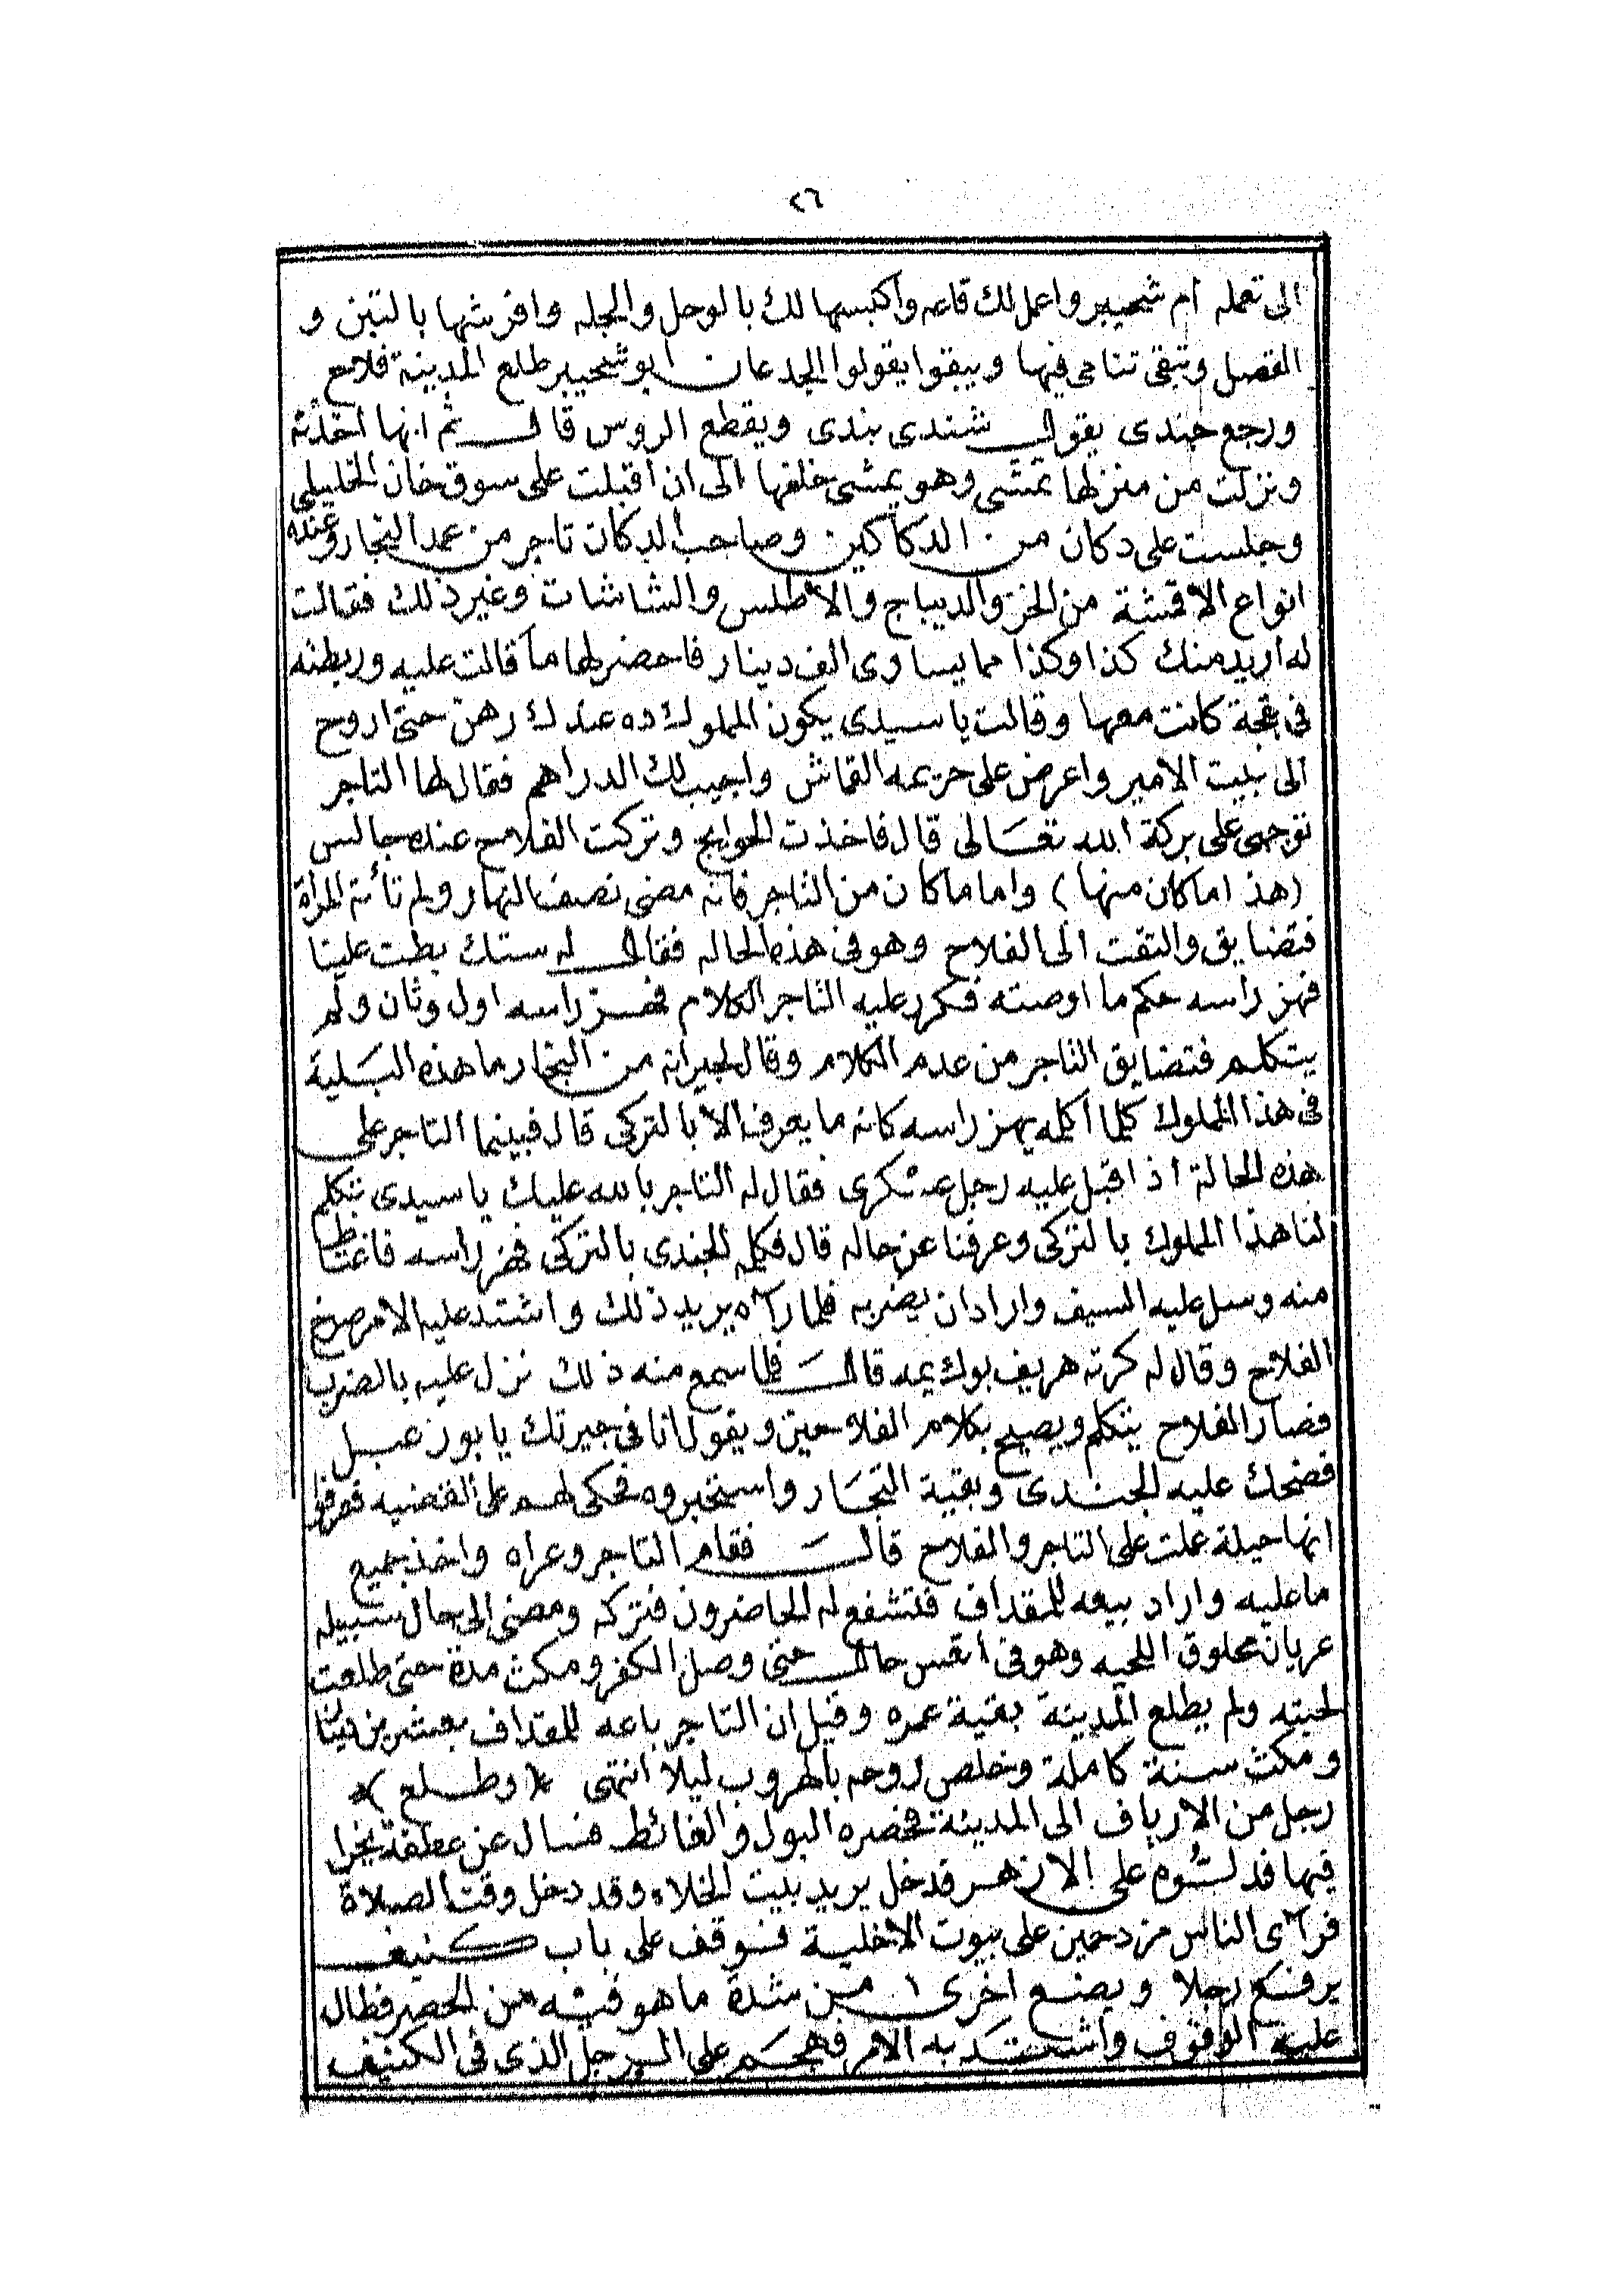 ٢٦
الى تعمله ام شحيبر واعمل لك قاعه واكبسها لك بالوحل والجله وافرشها بالتبن و
القصل وتبقى تنامى فيها ويبقوا يقولوا الجدعان ابو شحيبر طلع المدينة فلاح
ورجع جندى يقول شندى بندى ويقطع الروس قال ثم انها اخذته
ونزلت من منزلها تمشى وهو يمشى خلفها الى ان اقبلت على سوق خان الخليلى
وجلست على دكان من الدكاكين وصاحب الدكان تاجر من عمد التجار وعنده
انواع الاقمشة من الخز والديباج والاطلس والشاشات وغير ذلك فقالت
له اريد منك كذا وكذا مما يساوى الف دينار فاحضر لها ما قالت عليه وربطته
فى بقجة كانت معها وقالت يا سيدى يكون المملوك ده عندك رهن حتى اروح
الى بيت الامير واعرض على حريمه القماش واجيب لك الدراهم فقال لها التاجر
توجهى على بركة الله تعالى قال فاخذت الحوايج وتركت الفلاح عنده جالس
(هذا ما كان منها) واما ما كان من التاجر فانه مضى نصف النهار ولم تأته المرأة
فتضايق والتفت الى الفلاح وهو فى هذه الحاله فقال له ستك بطت علينا
فهز راسه حكم ما اوصته فكرر عليه التاجر الكلام فهز راسه اول وثان ولم
يتكلم فتضايق التاجر من عدم الكلام وقال لجيرانه من التجار ما هذه البلية
فى هذا المملوك كلما اكلمه يهز راسه كانه ما يعرف الا بالتركى قال فبينما التاجر على
هذه الحالة اذ اقبل عليه رجل عسكرى فقال له التاجر بالله عليك يا سيدى تتكلم
لنا هذا المملوك بالتركى وعرفنا عن حاله قال فكلمه الجندى بالتركى فهز راسه فاغتاظ
منه وسل عليه السيف واراد ان يضربه فلما رآه يريد ذلك واشتد عليه الامر صرخ
الفلاح وقال له كرته هريف بوك يمه قال فلما سمع منه ذلك نزل عليه بالضرب
فصار الفلاح يتكلم ويصيح بكلام الفلاحين ويقول انا فى جيرتك يا بو زعبل
فضحك عليه الجندى وبقية التجار واستخبروه فحكى لهم على القضيه فعرفوا
انها حيلة عملت على التاجر والفلاح قال فقام التاجر وعراه واخذ جميع
ما عليه واراد بيعه للمقداف فتشفع له الحاضرون فتركه ومضى الى حال سبيله
عريان محلوق اللحيه وهو فى اتعس حال حتى وصل الكفر ومكث مدة حتى طلعت
لحيته ولم يطلع المدينة بقية عمره وقيل ان التاجر باعه للمقداف بعشرين دينار
ومكث سنة كاملة وخلص روحه بالهروب ليلا انتهى *(وطلع)*
رجل من الارياف الى المدينة فحضره البول والغائط فسال عن عطفة يخرا
فيها فدلوه على الازهر فدخل يريد بيت الخلاء وقد دخل وقت الصلاة
فرآى الناس مزدحمين على بيوت الاخلية فوقف على باب كنيف
يرفع رجلا ويضع اخرى من شدة ما هو فيه من الحصر فطال
عليه الوقوف واشتد به الامر فهجم على الرجل الذى فى الكنيف